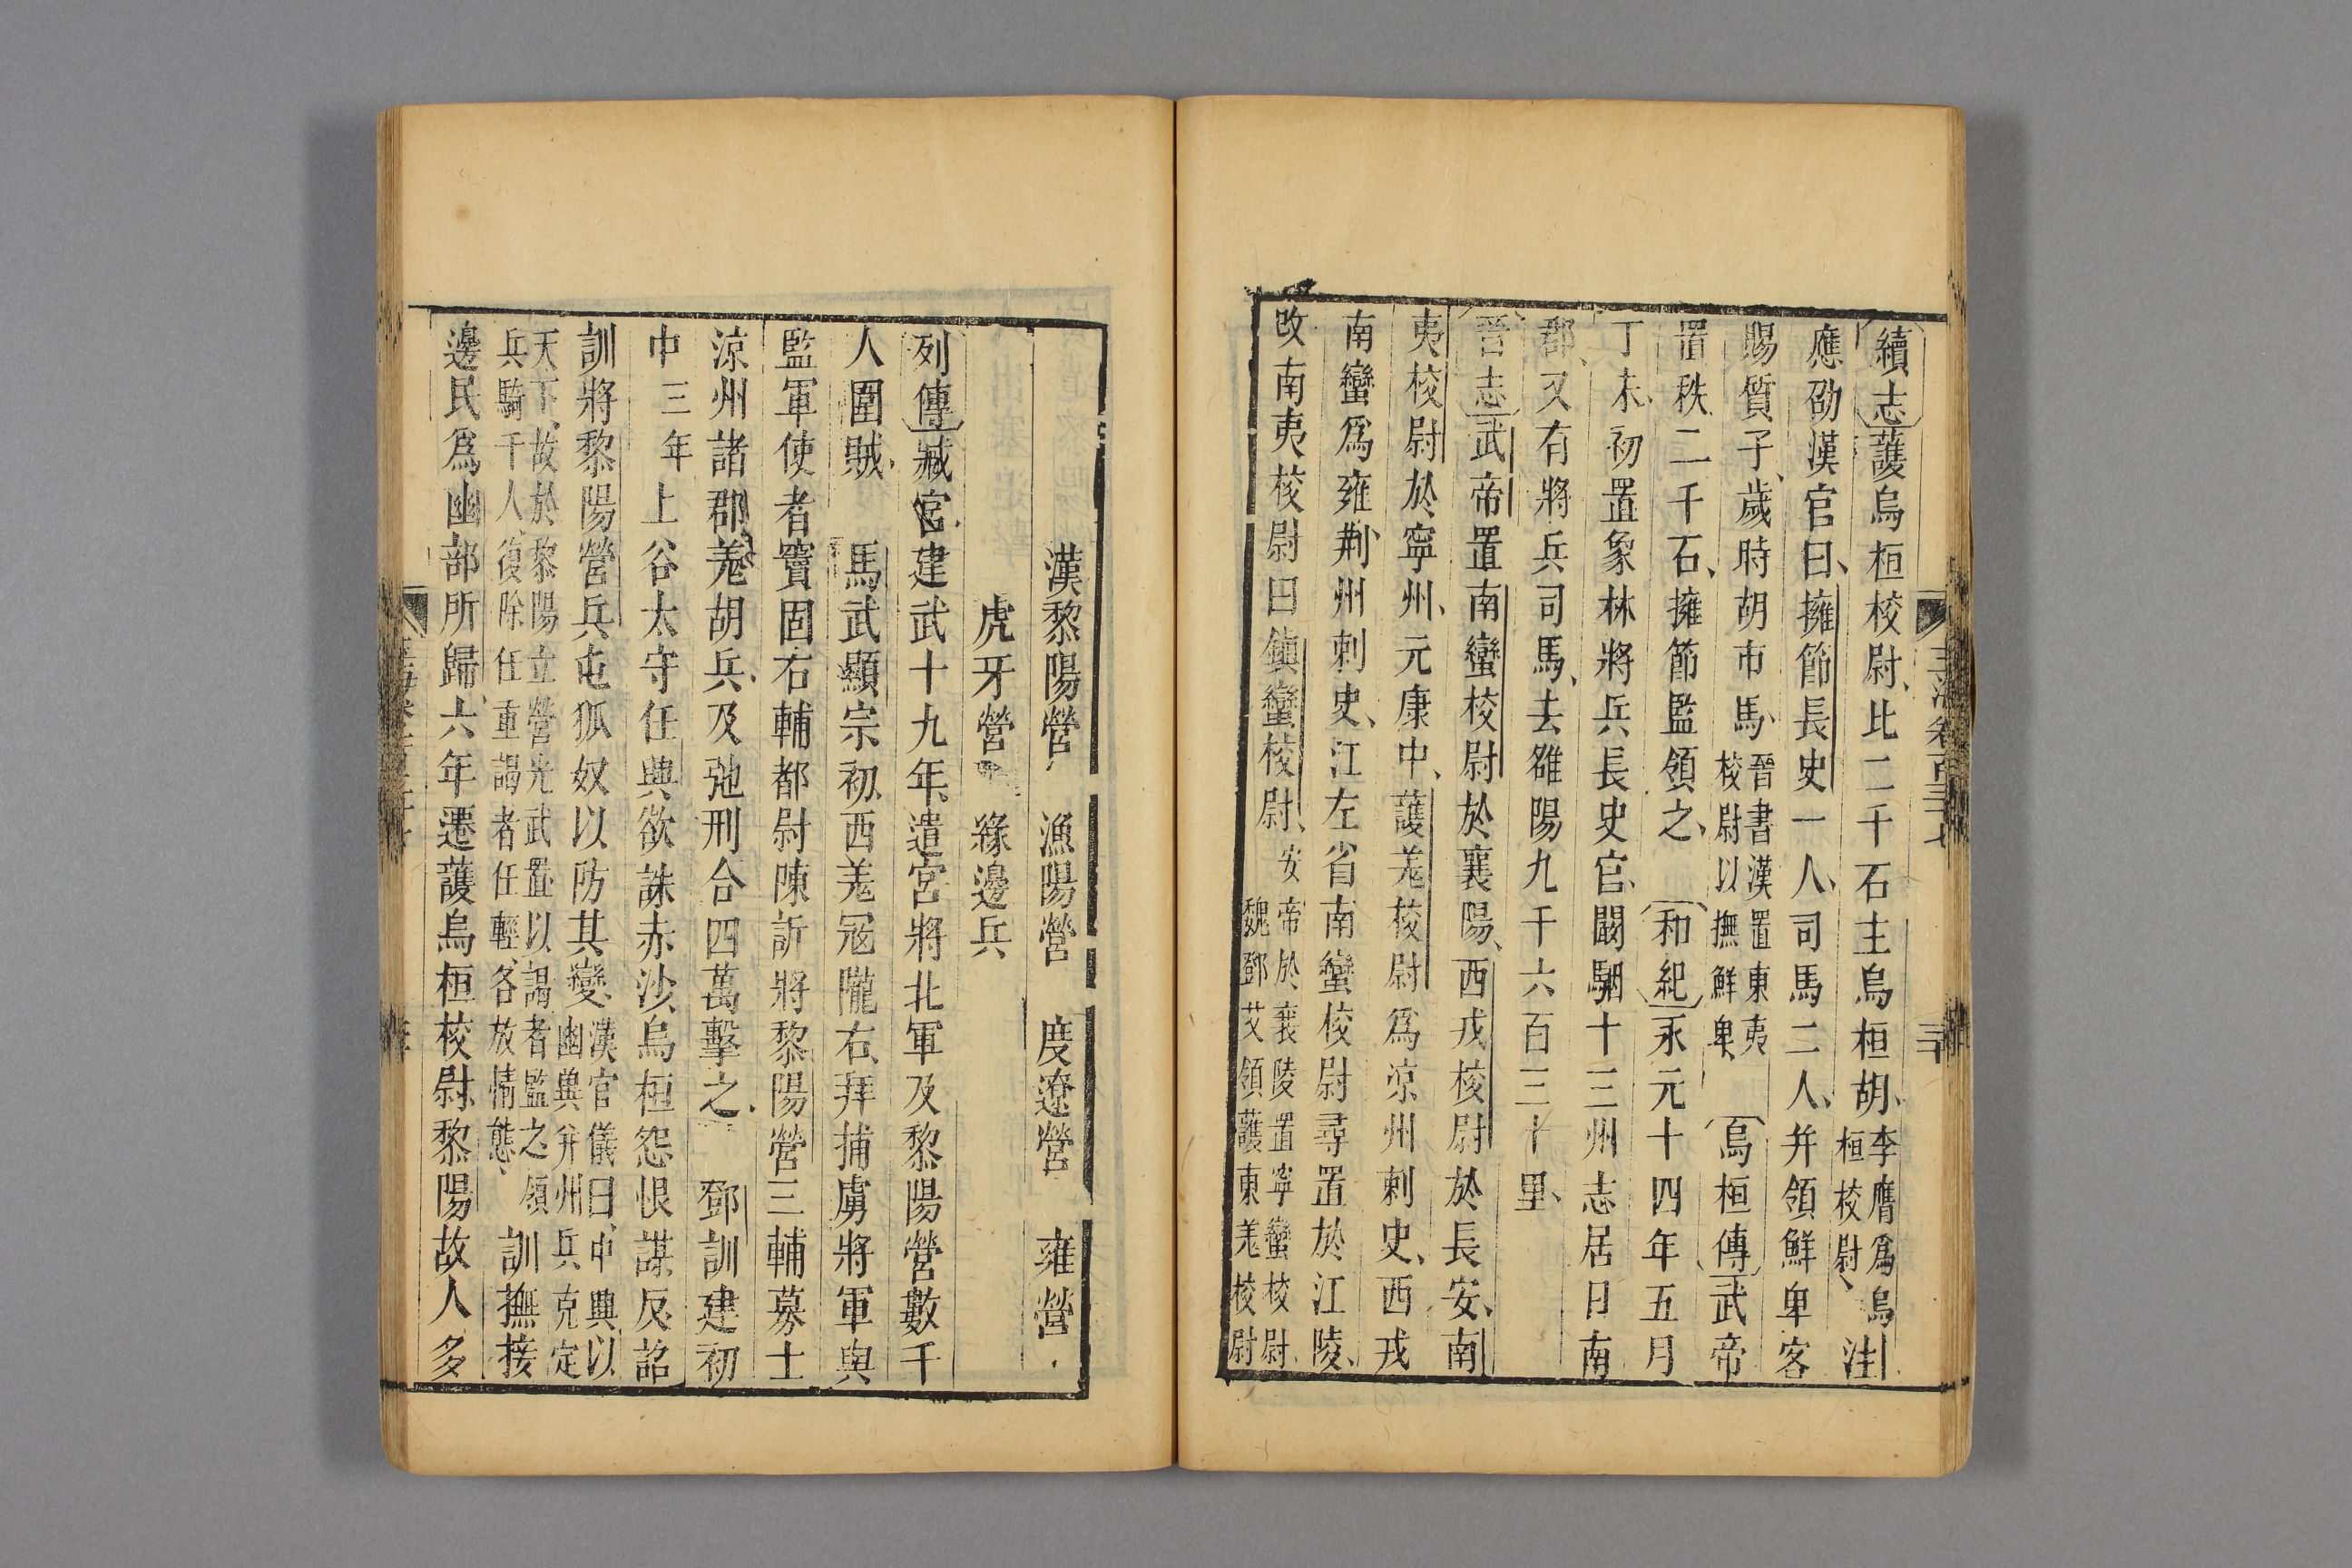 續志護烏桓校尉比二千石主烏桓胡李膺爲烏桓校尉注
應劭漢官曰擁節長史一人司馬二人并領鮮卑客
賜質子歲時胡市馬晉書漢置東夷校尉以撫鮮卑烏桓傳武帝
置秩二千石擁節監領之和紀永元十四年五月
丁未初置象林將兵長史官闞駰十三州志居日南
郡又有將兵司馬去雒陽九千六百三十里
晉志武帝置南蠻校尉於襄陽西戎校尉於長安南
夷校尉於寧州元康中護羌校尉爲涼州刺史西戎
南蠻爲雍荆州刺史江左省南蠻校尉尋置於江陵
改南夷校尉曰鎮蠻校尉安帝於襄陵置寧蠻校尉魏鄧艾領護東羌校尉
漢黎陽營 漁陽營 度遼營 雍營
虎牙營 緣邊兵
列傳臧宮建武十九年遣宮將北軍及黎陽營數千
人圍賊 馬武顯宗初西羌寇隴右拜捕虜將軍與
監軍使者竇固右輔都尉陳訢將黎陽營三輔募士
涼州諸郡羌胡兵及弛刑合四萬擊之 鄧訓建初
中三年上谷太守任興欲誅赤沙烏桓怨恨謀反詔
訓將黎陽營兵屯狐奴以防其變漢官儀曰中興以幽冀并州兵克定
天下故於黎陽立營光武置以謁者監之領兵騎千人復除任重謁者任輕各放情態訓撫接
邊民爲幽部所歸六年遷護烏桓校尉黎陽故人多